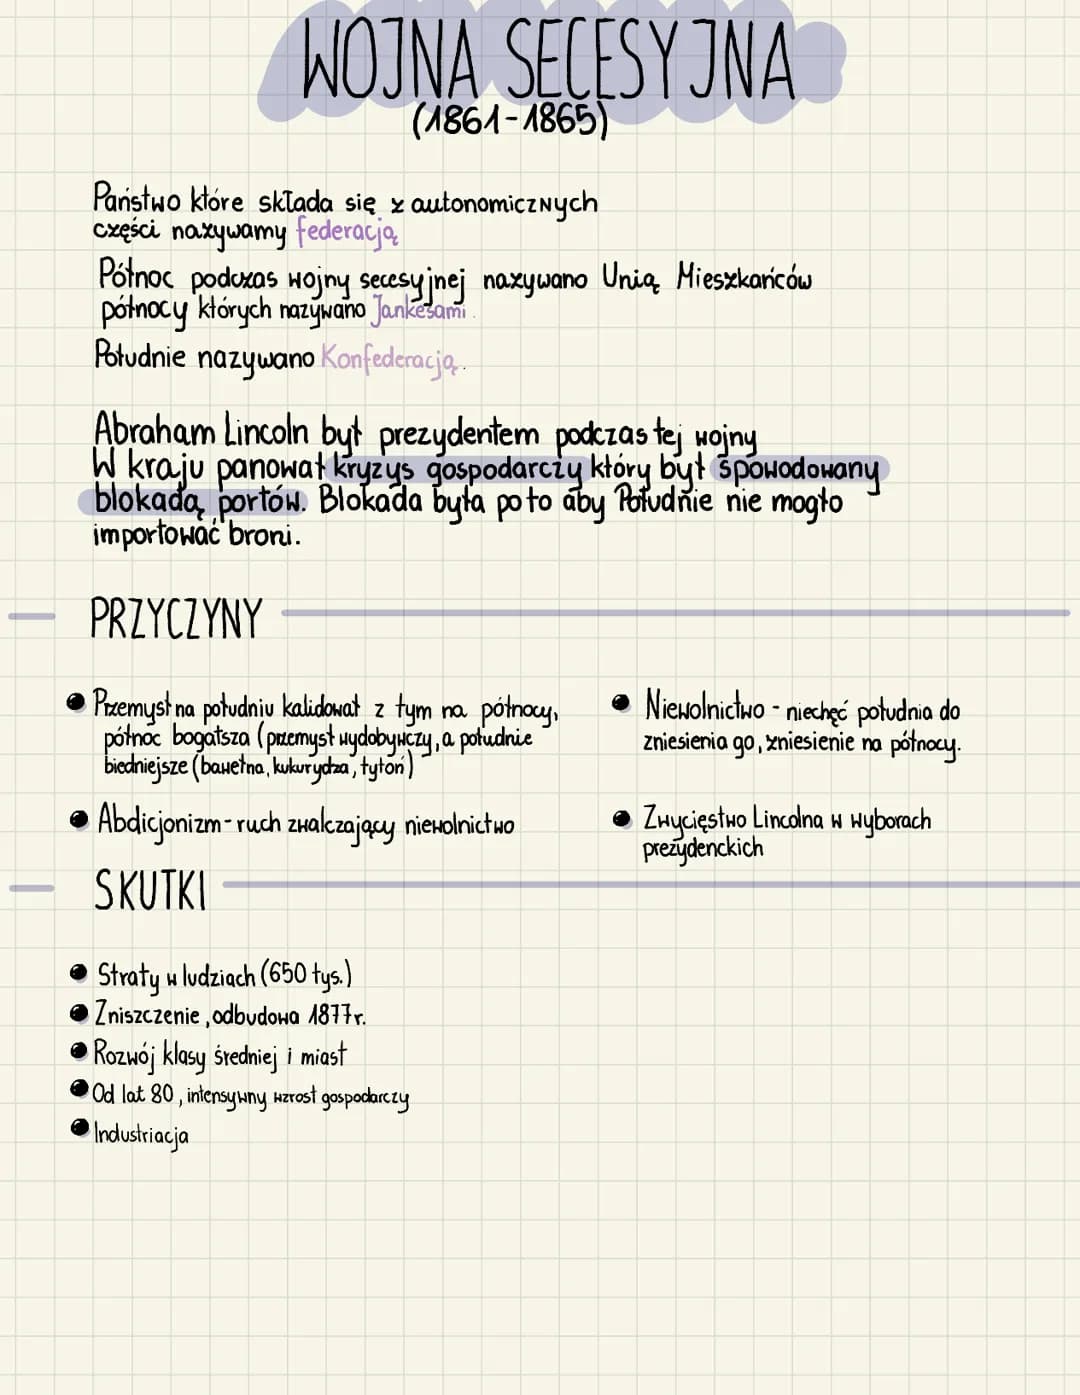 WOJNA SECESYJNA
(1861-1865)
Państwo które składa się z autonomicznych
części nazywamy federacją
Północ podczas wojny secesyjnej nazywano Unią Mieszkańców
północy których nazywano Jankesami.
Południe nazywano Konfederacją.
Abraham Lincoln był prezydentem podczas tej wojny
W kraju panował kryzys gospodarczy który był spowodowany
blokadą portów. Blokada była po to aby Południe nie mogło
importować broni.
PRZYCZYNY
Przemysł na południu kalidował z tym na północy,
północ bogatsza (przemysł wydobywczy, a południe
biedniejsze (bawełna, kukurydza, tytoń)
Abdicjonizm - ruch zwalczający niewolnictwo
Niewolnictwo - niechęć południa do
zniesienia go, zniesienie na północy.
Zwycięstwo Lincolna w wyborach
prezydenckich
SKUTKI
Straty w ludziach (650 tys.)
Zniszczenie, odbudowa 1877r.
Rozwój klasy średniej i miast
Od lat 80, intensywny wzrost gospodarczy
Industriacja